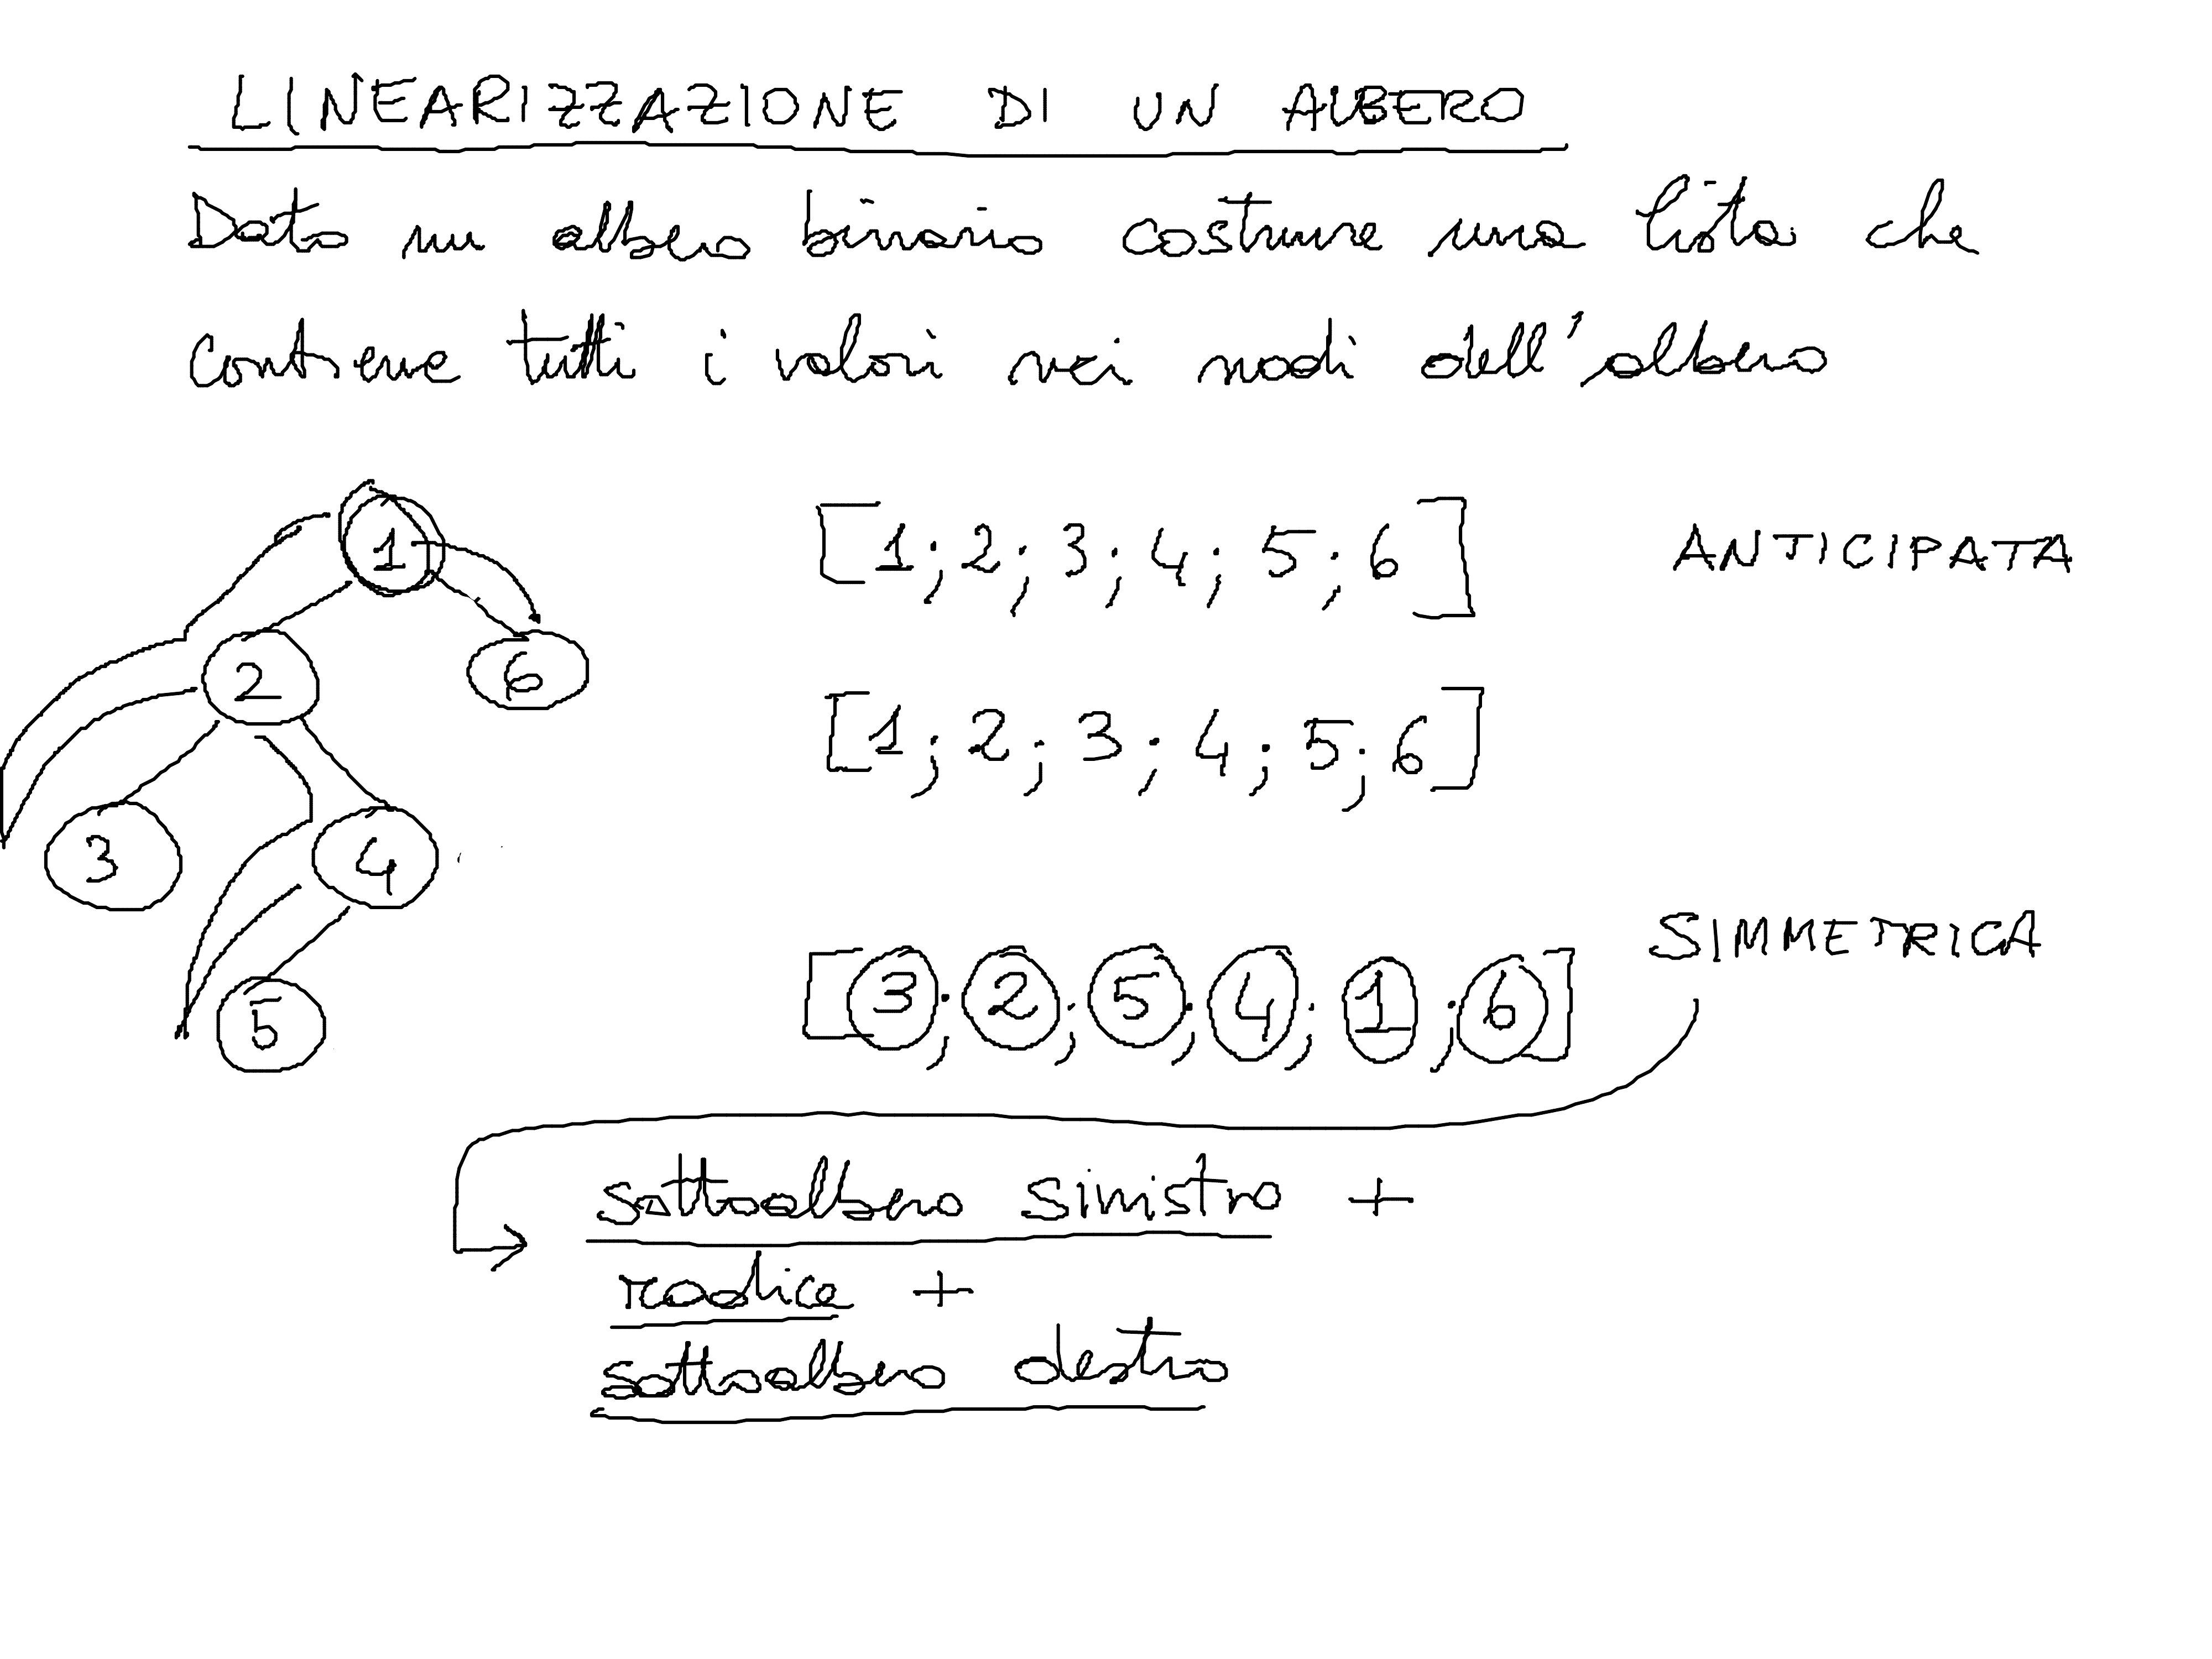 LINEARIZZAZIONE DI UN ALBERO
Dato un albero binario costruire una lista che
contiene tutti i valori nei nodi dell'albero
1
[1; 2; 3; 4; 5; 6]
ANTICIPATA
2
6
[1; 2; 3; 4; 5; 6]
3
4
SIMMETRICA
[3; 2; 5; 4; 1; 6]
5
sottoalbero sinistro +
radice +
sottoalbero destro